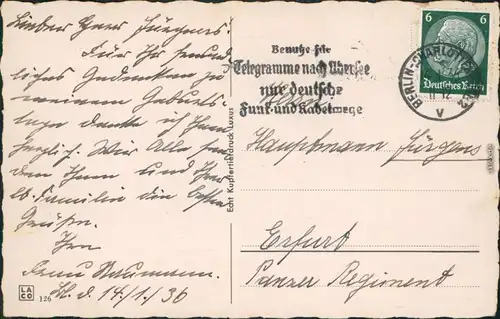 Lieber Herr Jürgens!
Für Ihr freund
liches Gedenken zu
meinem Geburts
tage danke ich Ihnen
herzlich. Wir Alle senden
Ihnen und Ihrer
lb. Familie die besten
Grüße.
Ihr
Baumann.
14./1./36
LA
CO
126
Echt Kupfertiefdruck Luxus
Benutze für
Telegramme nach Übersee
nur deutsche
Funk- und Kabelwege
6 6
Deutsches Reich
BERLIN-CHARLOTTENBURG
V
Hauptmann Jürgens
Erfurt
Panzer Regiment